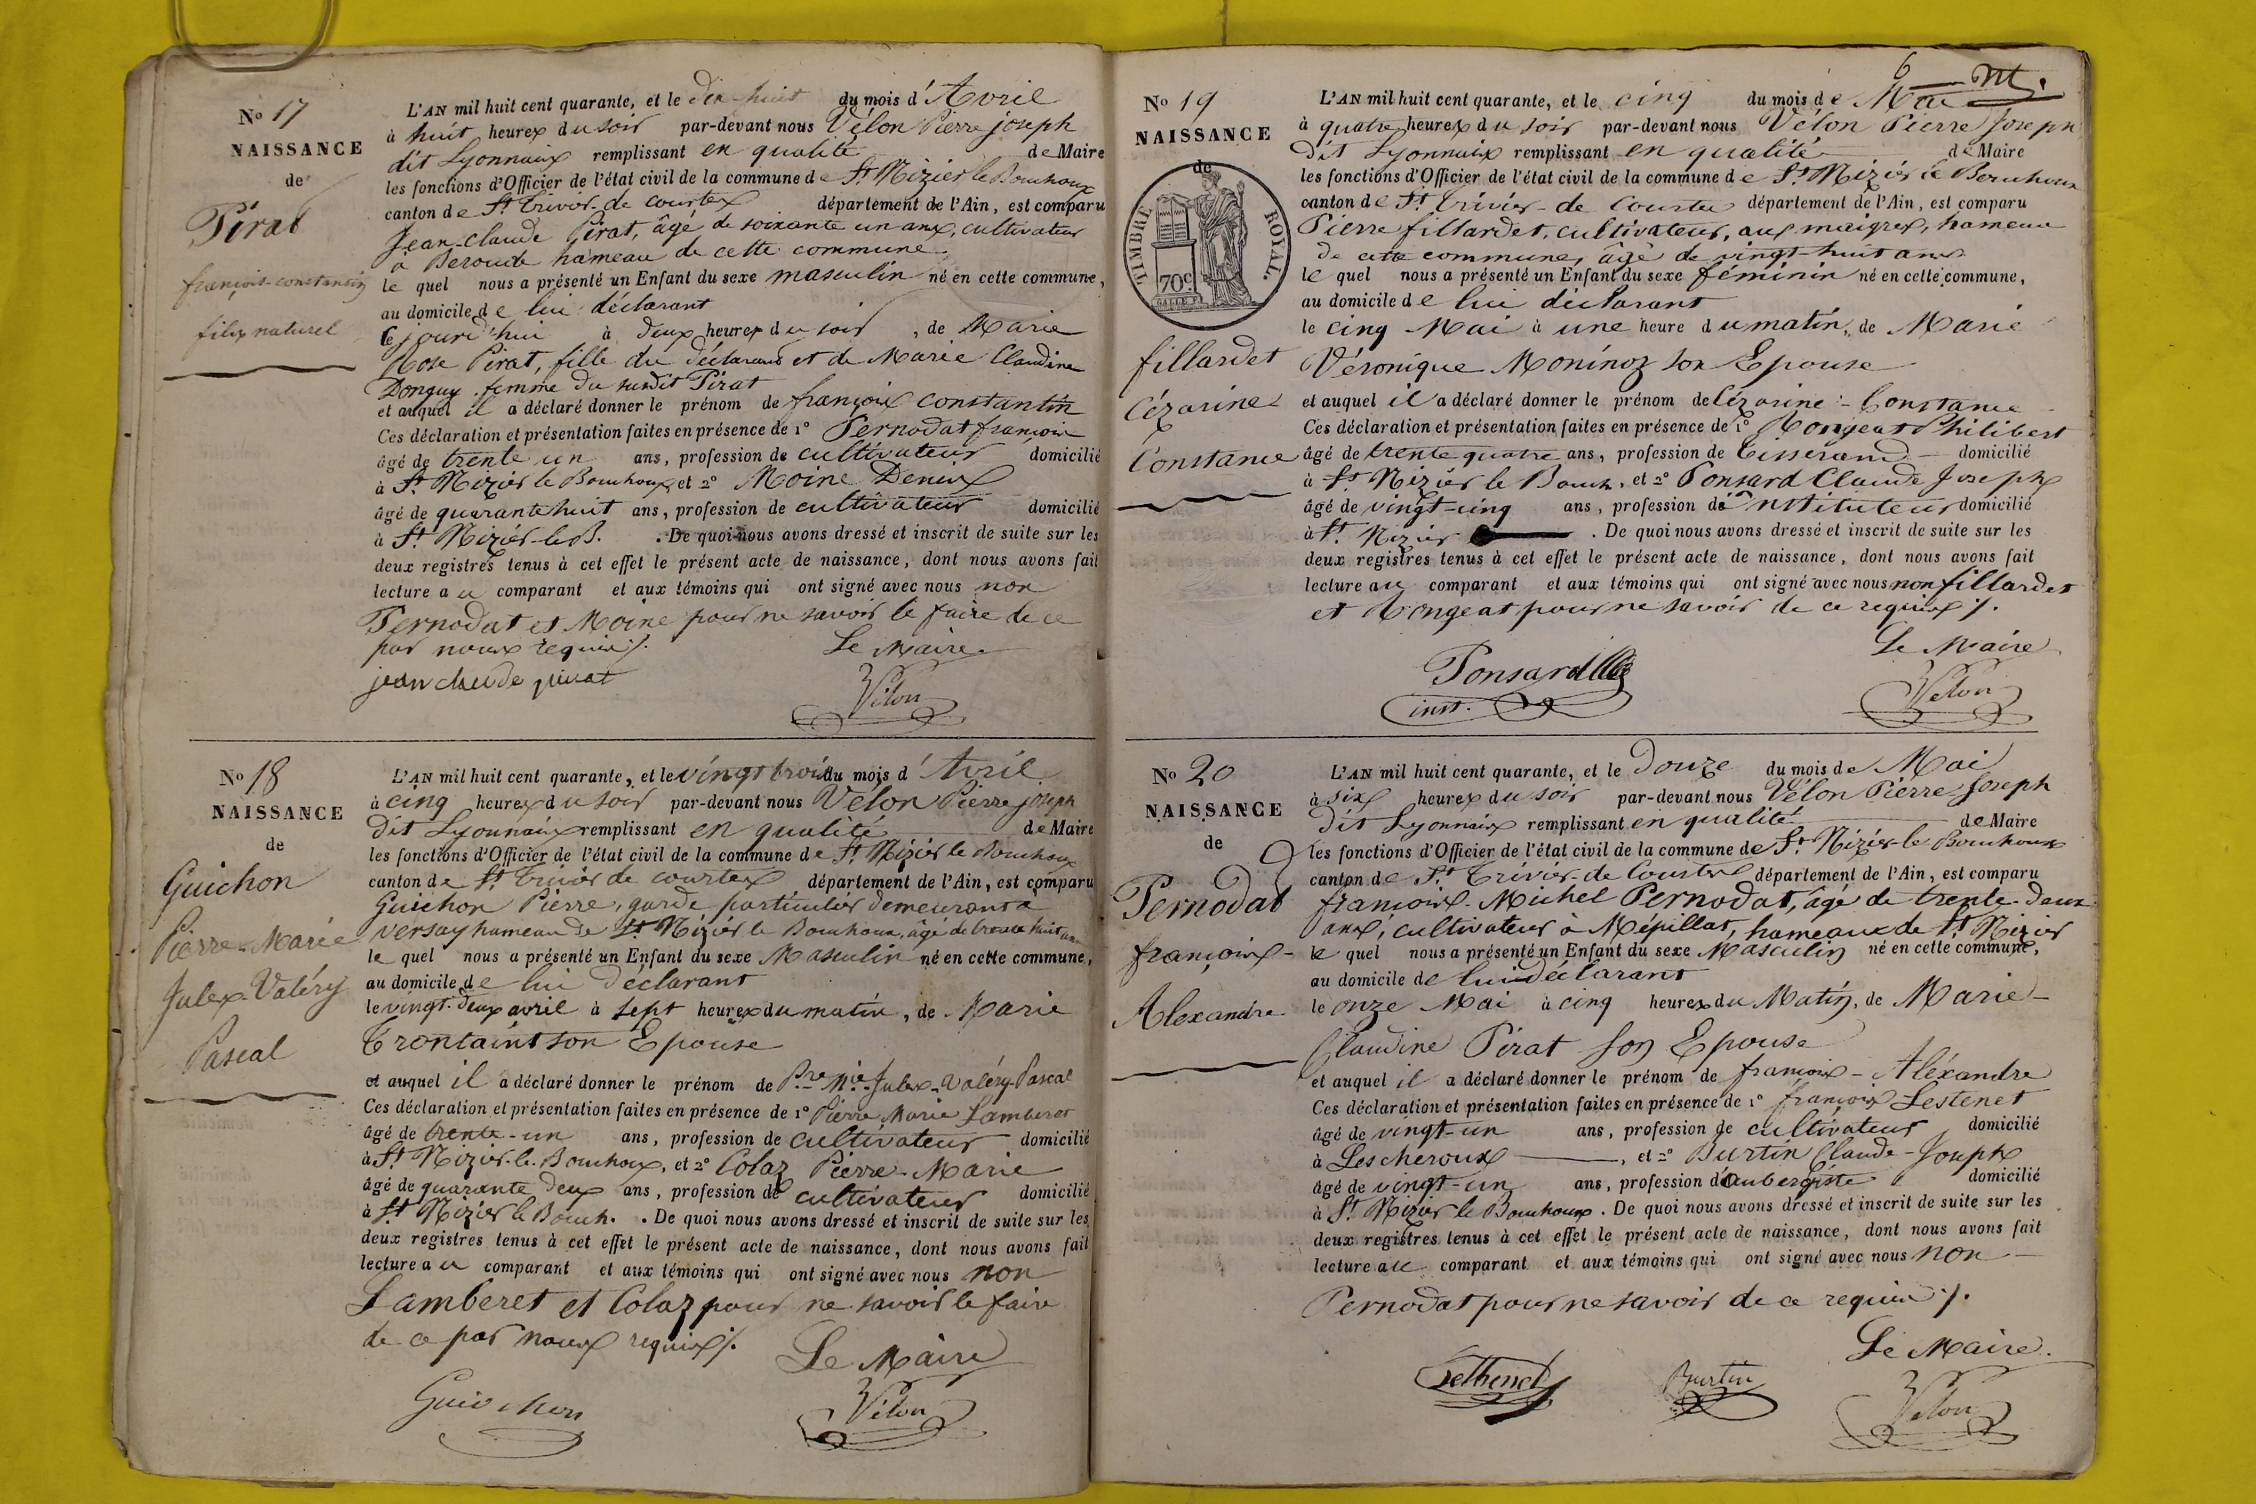 No 17
NAISSANCE
de
Pirat
françois-constantin
filx naturel
L'AN mil huit cent quarante, et le dix-huit du mois d'Avril
à huit heurex du soir par-devant nous Vélon Pierre joseph
dit Lyonnaix remplissant en qualité de Maire
les fonctions d'Officier de l'état civil de la commune de St Nizier le Bouchoux
canton de St Trivier-de courtex département de l'Ain, est comparu
Jean-claude Pirat, âgé de soixante un anx, cultivateur
à hameau de cette commune,
le quel nous a présenté un Enfant du sexe masculin né en cette commune,
au domicile de lui déclarant
cejourd'hui à deux heurex du soir, de Marie
Rose Pirat, fille du déclarant et de Marie Claudine
Donguy femme du susdit Pirat
et auquel il a déclaré donner le prénom de françoix constantin
Ces déclaration et présentation faites en présence de 1° Pernodat françoix
âgé de trente un ans, profession de cultivateur domicilié
à St Nizier le Bouchoux, et 2° Moine Denix
âgé de quarante huit ans, profession de cultivateur domicilié
à St Nizier-le B. . De quoi nous avons dressé et inscrit de suite sur les
deux registres tenus à cet effet le présent acte de naissance, dont nous avons fait
lecture au comparant et aux témoins qui ont signé avec nous non
Pernodat et Moine pour ne savoir le faire de ce
par noux requix/.
Le Maire
jean claude pirat
Vélon
No 18
NAISSANCE
de
Guichon
Pierre-Marie
Julex-Valéry
Pascal
L'AN mil huit cent quarante, et le vingt troix du mois d'Avril
à cinq heurex du soir par-devant nous Vélon Pierre joseph
dit Lyonnaix remplissant en qualité de Maire
les fonctions d'Officier de l'état civil de la commune de St Nizier le Bouchoux
canton de St Trivier de courtex département de l'Ain, est comparu
Guichon Pierre, garde particulier demeurant à
versay hameau de St Nizier le Bouhoux, âgé de trente huit anx
le quel nous a présenté un Enfant du sexe Masculin né en cette commune,
au domicile de lui déclarant
le vingt-deux avril à sept heurex du matin, de Marie
Trontaint son Epouse
et auquel il a déclaré donner le prénom de Pre Mie Julex-Valéry-Pascal
Ces déclaration et présentation faites en présence de 1° Pierre Marie Lamberet
âgé de trente-un ans, profession de cultivateur domicilié
à St Nizier-le-Bouhoux, et 2° Colaz Pierre-Marie
âgé de quarante deux ans, profession de cultivateur domicilié
à St Nizier le Bouch. . De quoi nous avons dressé et inscrit de suite sur les
deux registres tenus à cet effet le présent acte de naissance, dont nous avons fait
lecture au comparant et aux témoins qui ont signé avec nous non
Lamberet et Colaz pour ne savoir le faire
de ce par noux requix/.
Le Maire
Guichon
Vélon
6
No 19
NAISSANCE
de
TIMBRE ROYAL.
70c
fillardet
Cézarine
Constance
L'AN mil huit cent quarante, et le cinq du mois de Mai
à quatre heurex du soir par-devant nous Vélon Pierre Joseph
dit Lyonnaix remplissant en qualité de Maire
les fonctions d'Officier de l'état civil de la commune de St Nizier le Bouchoux
canton de St Trivier-de Courtex département de l'Ain, est comparu
Pierre fillardet, cultivateur, aux maigrex, hameau
de cette commune, âgé de vingt-huit anx
le quel nous a présenté un Enfant du sexe féminin né en cette commune,
au domicile de lui déclarant
le cinq Mai à une heure du matin, de Marie
Véronique Moninoz son Epouse
et auquel il a déclaré donner le prénom de Cézarine-Constance
Ces déclaration et présentation faites en présence de 1° Rongeat Philibert
âgé de trente quatre ans, profession de tisserand domicilié
à St Nizier le Bouch. et 2° Ponsard Claude Joseph
âgé de vingt-cinq ans, profession d'instituteur domicilié
à St Nizier . De quoi nous avons dressé et inscrit de suite sur les
deux registres tenus à cet effet le présent acte de naissance, dont nous avons fait
lecture au comparant et aux témoins qui ont signé avec nous non fillardet
et Rongeat pour ne savoir de ce requix/.
Le Maire
Ponsard
inst.
Vélon
No 20
NAISSANCE
de
Pernodat
françoix-
Alexandre
L'AN mil huit cent quarante, et le douze du mois de Mai
à six heurex du soir par-devant nous Vélon Pierre Joseph
dit Lyonnaix remplissant en qualité de Maire
les fonctions d'Officier de l'état civil de la commune de St Nizier-le Bouchoux
canton de St Trivier-de Courtex département de l'Ain, est comparu
françoix-Michel Pernodat, âgé de trente-deux
anx, cultivateur à Mépillat, hameau de St Nizier
le quel nous a présenté un Enfant du sexe Masculin né en cette commune,
au domicile de lui déclarant
le onze Mai à cinq heurex du Matin, de Marie-
Claudine Pirat son Epouse
et auquel il a déclaré donner le prénom de françoix-Aléxandre
Ces déclaration et présentation faites en présence de 1° françoix Lestenet
âgé de vingt-un ans, profession de cultivateur domicilié
à Lescheroux, et 2° Burtin Claude-Joseph
âgé de vingt-un ans, profession d'aubergiste domicilié
à St Nizier le Bouhoux. De quoi nous avons dressé et inscrit de suite sur les
deux registres tenus à cet effet le présent acte de naissance, dont nous avons fait
lecture au comparant et aux témoins qui ont signé avec nous non
Pernodat pour ne savoir de ce requix/.
Le Maire.
Burtin
Vélon